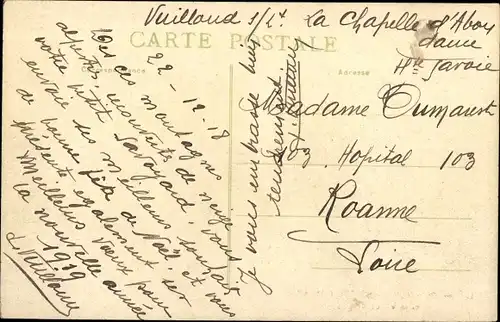 Vuilloud s/Lt. La Chapelle d'Abon
dance
Hte Savoie
CARTE POSTALE
Correspondance
Adresse
22-12-18
Des ces montagnes
alpestres recouverts de neige
votre petit Savoyard, vous
envoie ses meilleurs souhaits
de bonne fête de Noël, et vous
présente également ses
Meilleurs vœux pour
la nouvelle année
1919
L. Vuilloud
Je vous embrasse bien
tendrement
Madame
103 Hopital 103
Roanne
Loire